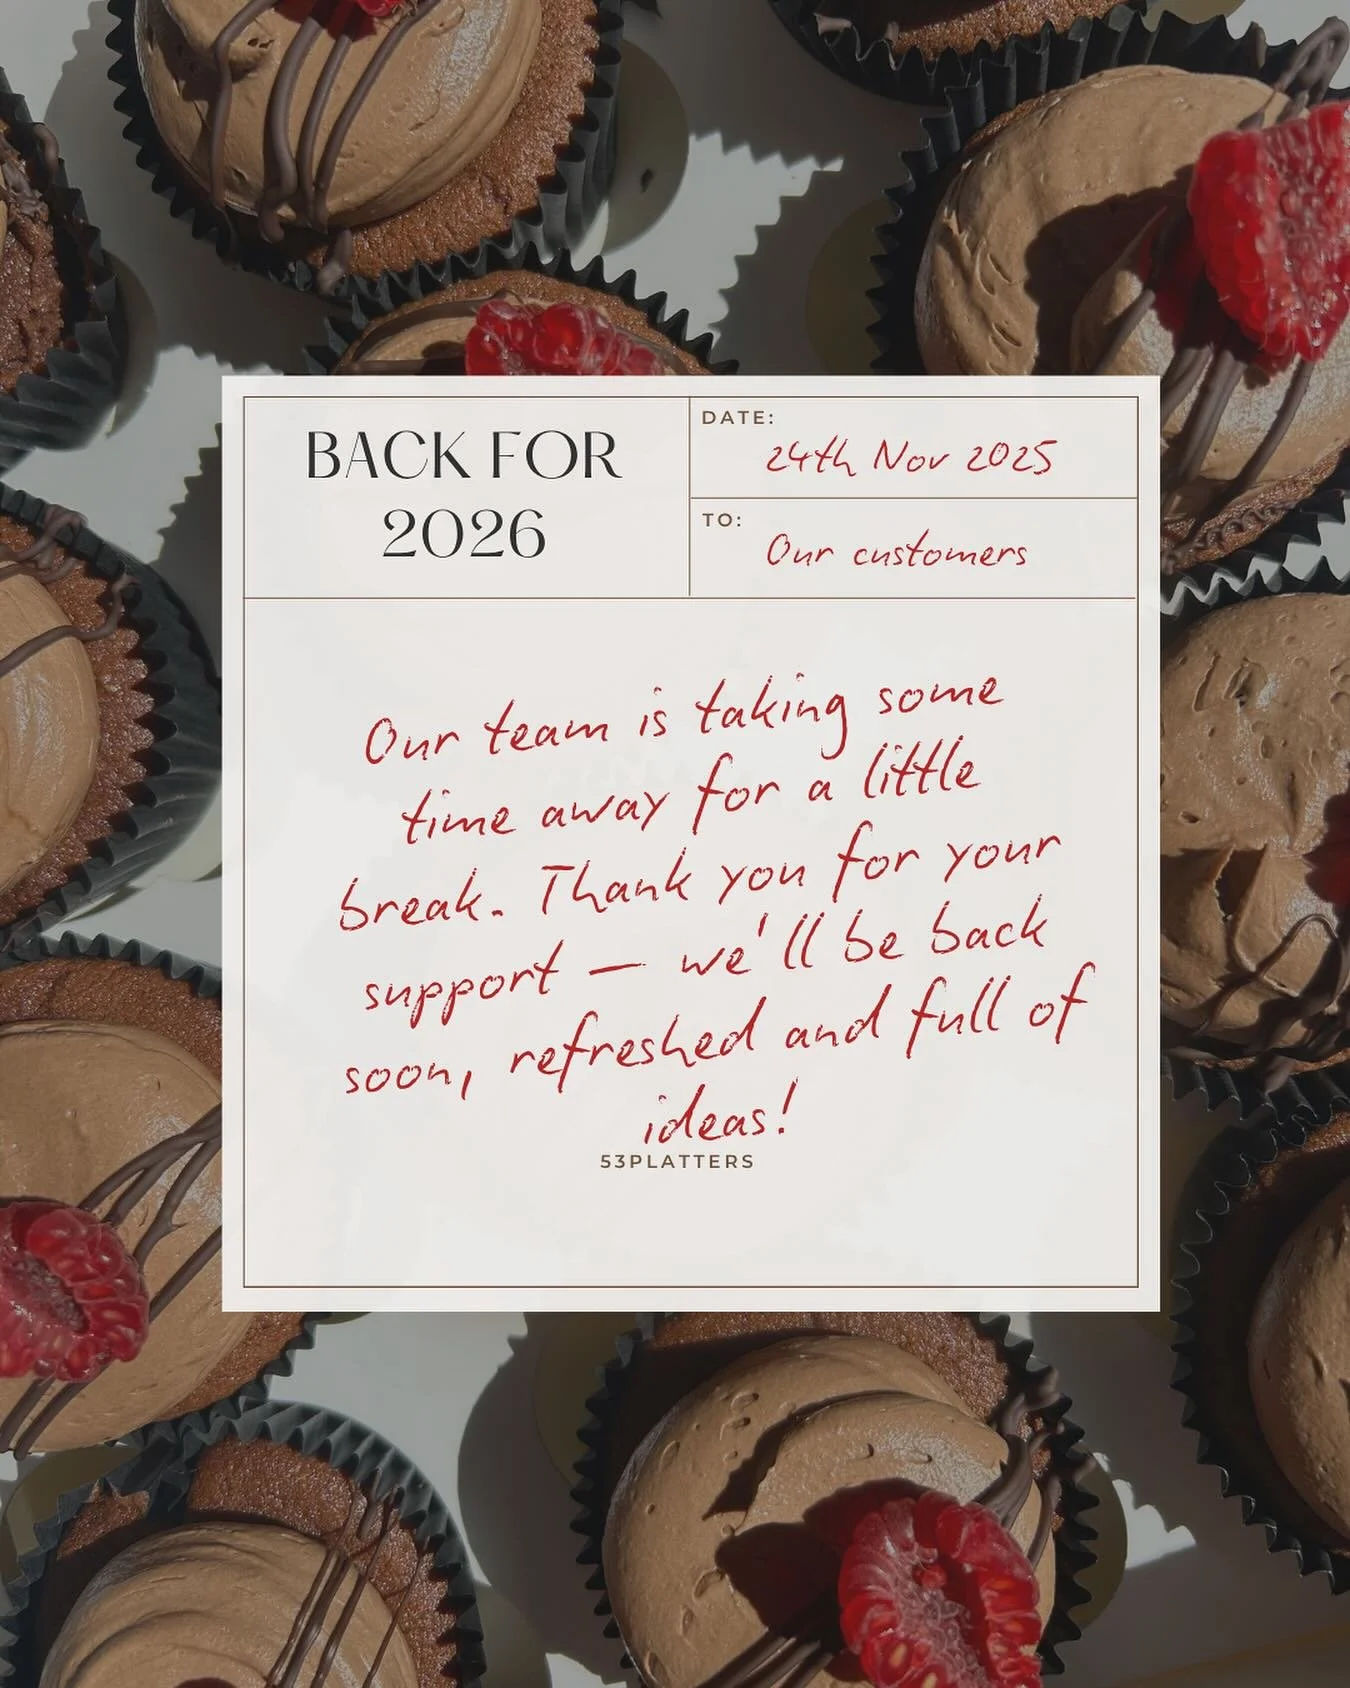 BACK FOR
2026
DATE:
24th Nov 2025
TO:
Our customers
Our team is taking some
time away for a little
break. Thank you for your
support — we'll be back
soon, refreshed and full of
ideas!
53PLATTERS